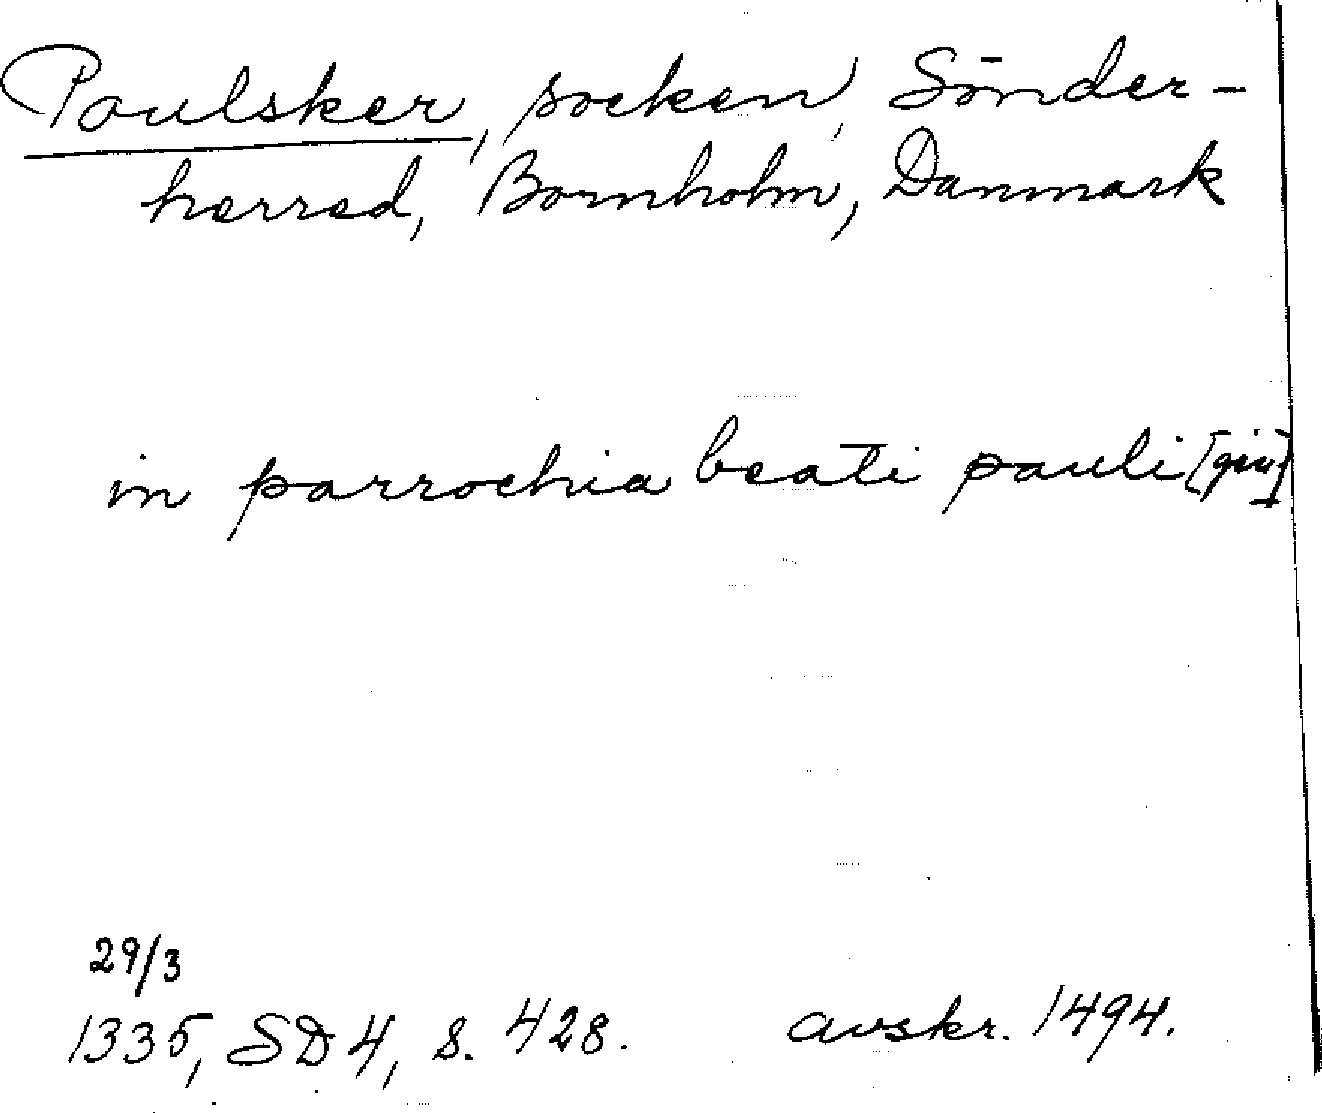 Poulsker, socken, Sönder-
herred, Bornholm, Danmark
in parrochia beati pauli [gen]
29/3
1335, SD 4, s. 428. avskr. 1494.